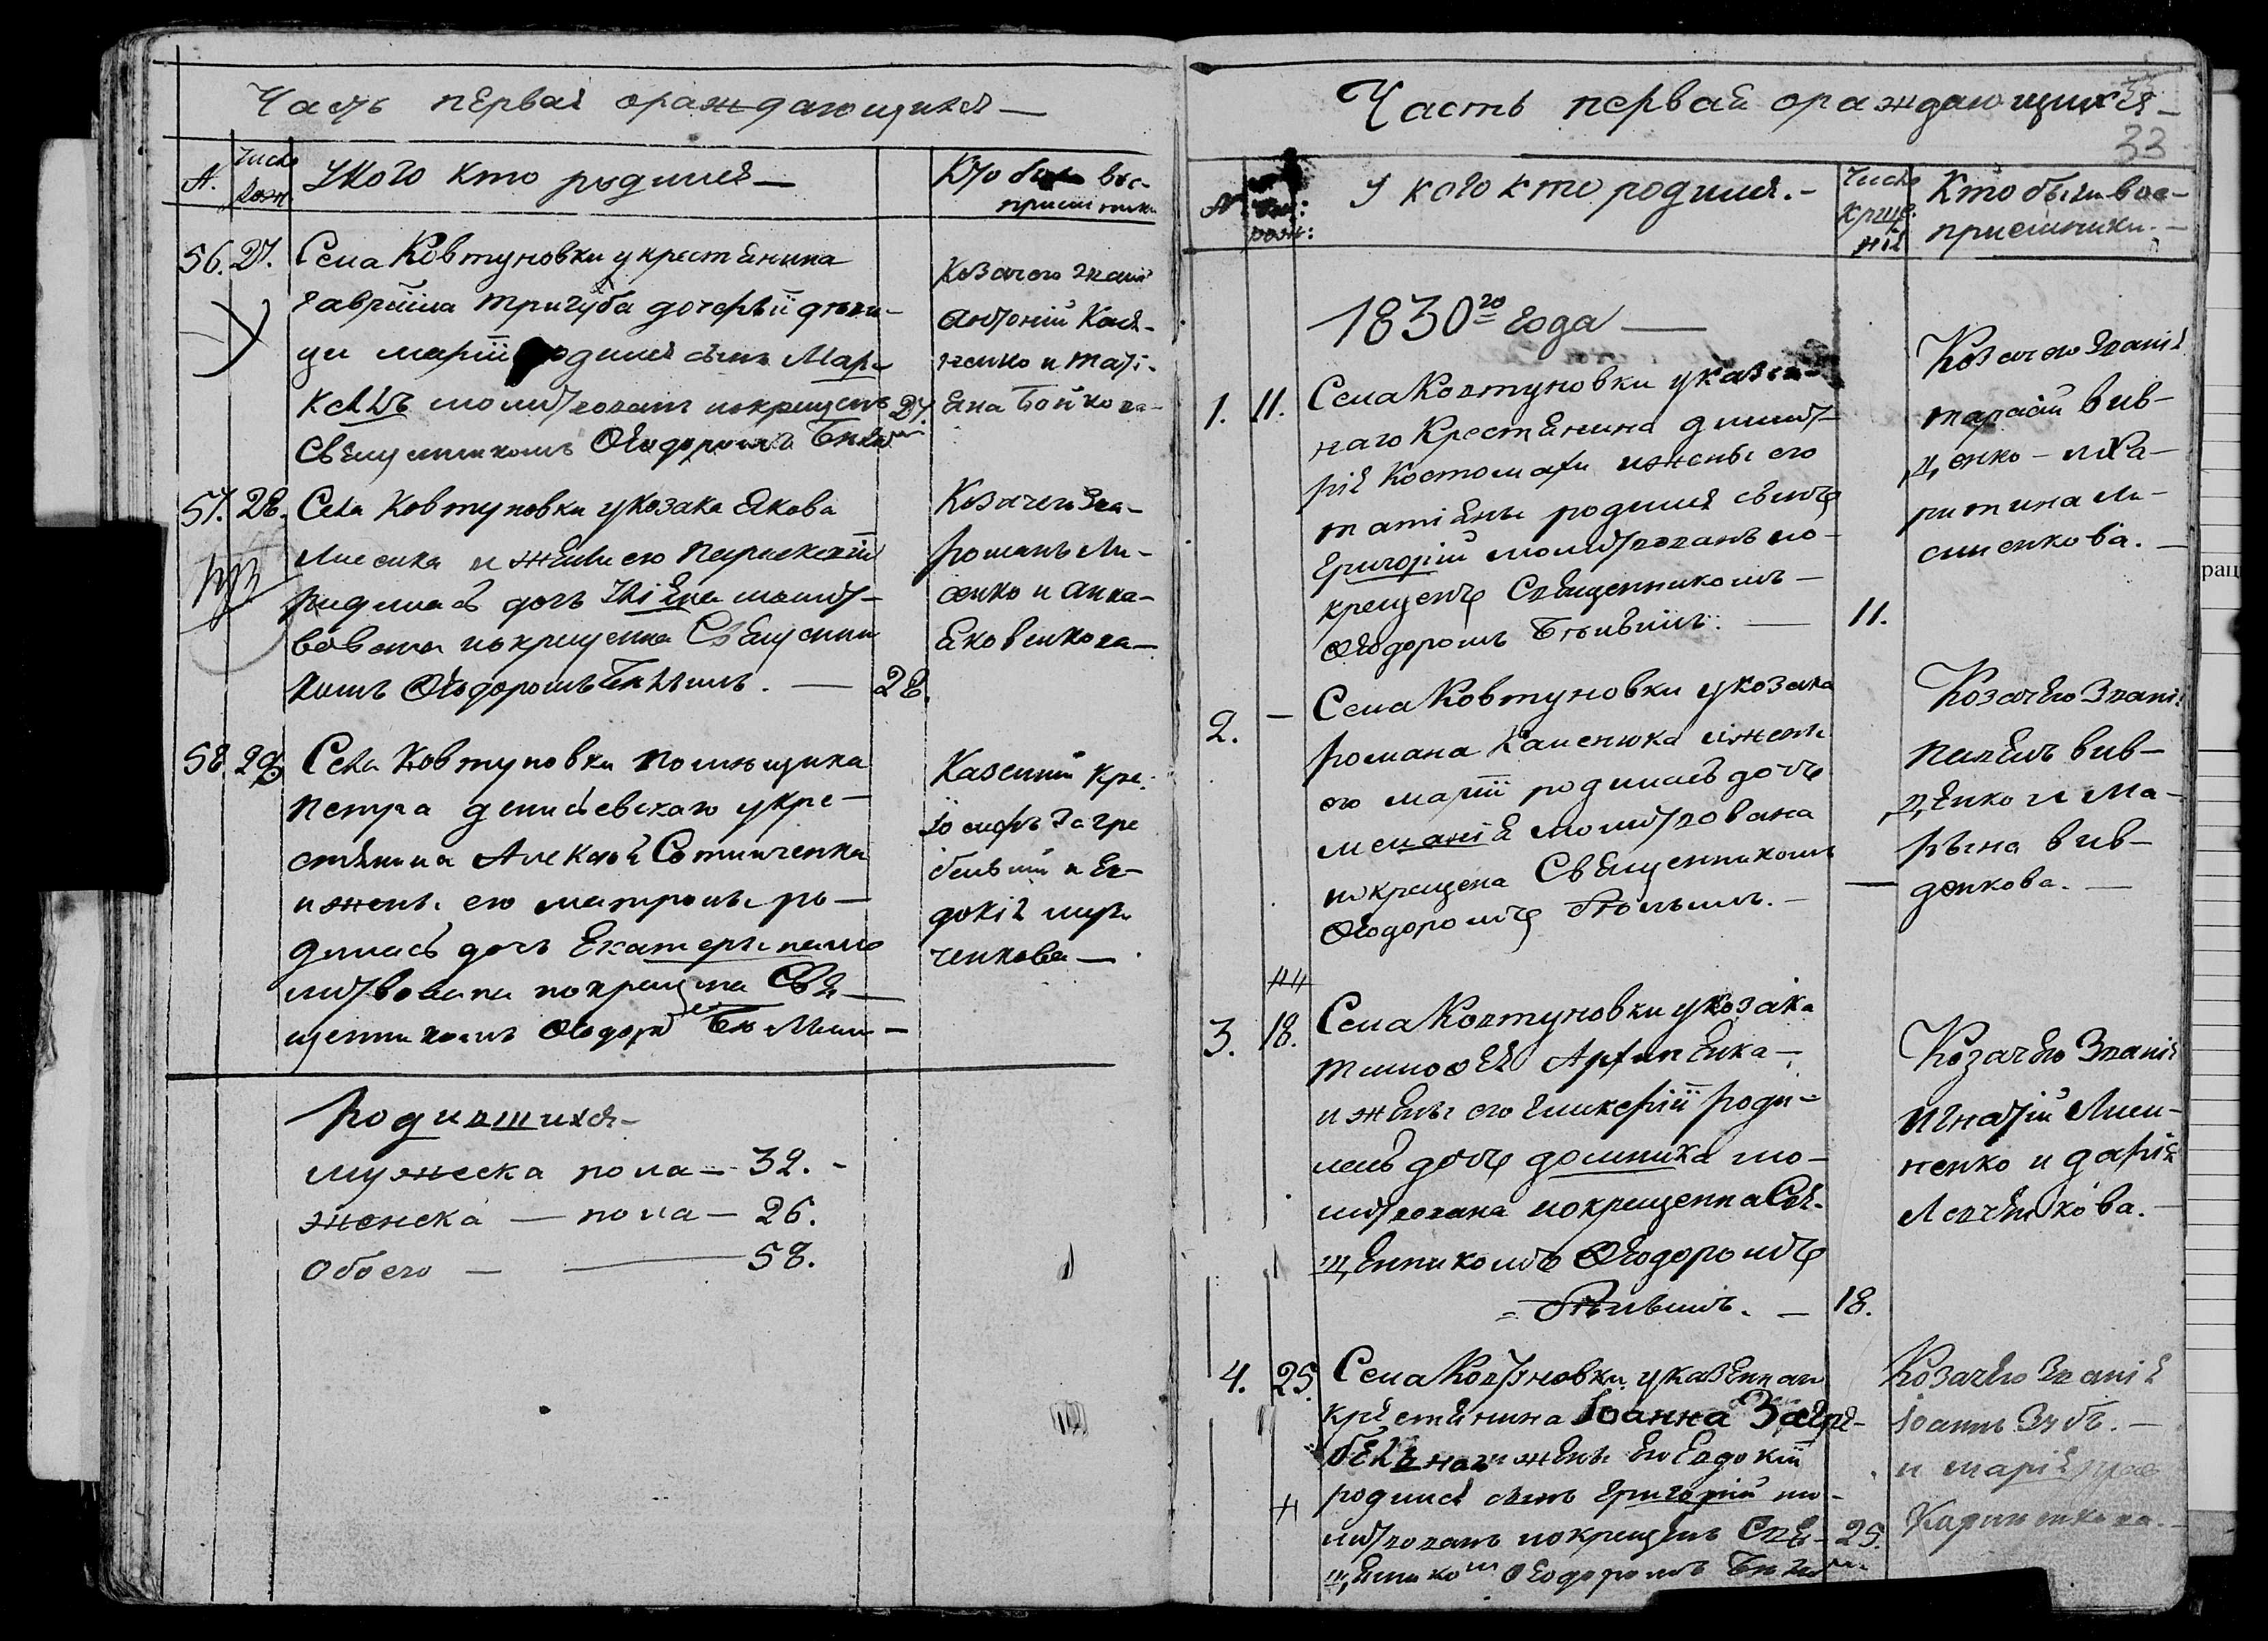 Часть первая ораждающихся —
№. Число рож. У кого кто родился — Кто были вос-
приемники
56. 27. Села Ковтуновки у крестянина
Гавріила Тригуба дочерѣ
Маріи родился сынъ Мар-
келъ молитвованъ и крещенъ 27.
Священникомъ Ѳеодоромъ
Козачого званія
Антоній Кася-
ненко и Таті-
яна Бойкова —
57. 28. Села Ковтуновки у козака Якова
Лисенка и жены его Параскевіи
родилась дочь молит-
вована и крещенна Священни
комъ Ѳеодоромъ Бѣлымъ. — 28.
Козачего зва-
Романъ Ли-
сенко и Анна
Яковенкова —
58. 29. Села Ковтуновки помѣщика
Петра Денисьевскаго у кре-
стянина Алексѣя Сотниченка
и жены его Матроны ро-
дилась дочь Екатерина мо
литвована и крещена Свя-
щенникомъ Ѳеодор
Казенній кре.
Іосифъ Загре
белній и Ев-
докія
ченкова —
Родившихся —
мужеска пола — 32. -
женска — пола — 26.
обоего — 58.
Часть первая ораждающихся —
33
№ рож: У кого кто родился. — Число креще-
нія Кто были вос-
приемники. —
1830го года —
1. 11. Села Ковтуновки у казен-
наго крестянина Димит-
рія Костомахи и жены его
Татіяны родился сынъ
Григорій молитвованъ и о-
крещенъ Священникомъ —
Ѳеодоромъ Бѣлымъ. — 11.
Козачего званія
Тарасій Вив-
денко — и Ха-
ритина Ли-
сиенкова. —
2. — Села Ковтуновки у козака
Романа Каменюка и жены
его Маріи родилась дочь
Меланія молитвована
и крещена Священникомъ —
Ѳеодоромъ Бѣлымъ. —
Козачего званія
Павелъ Вив-
денко и Ма-
рѣна Вив-
денкова. —
3. 18. Села Ковтуновки у козака
Тимоѳея —
и жены его Гликеріи роди-
лась дочь Домникѣ мо-
литвована и крещенна Свя-
щенникомъ Ѳеодоромъ
= Бѣлымъ. — 18.
Козачего званія
Игнатій Лиси-
ненко и Дарія
Левченкова.
4. 25. Села Ковтуновки у казеннаго
крестянина Іоанна Загре-
белнаго и жены его Евдокіи
родился сынъ Григорій мо-
литвованъ и крещенъ Свя- 25.
щенникомъ Ѳеодоромъ
Козачего званія
Іоаннъ Зубъ. —
и Марія